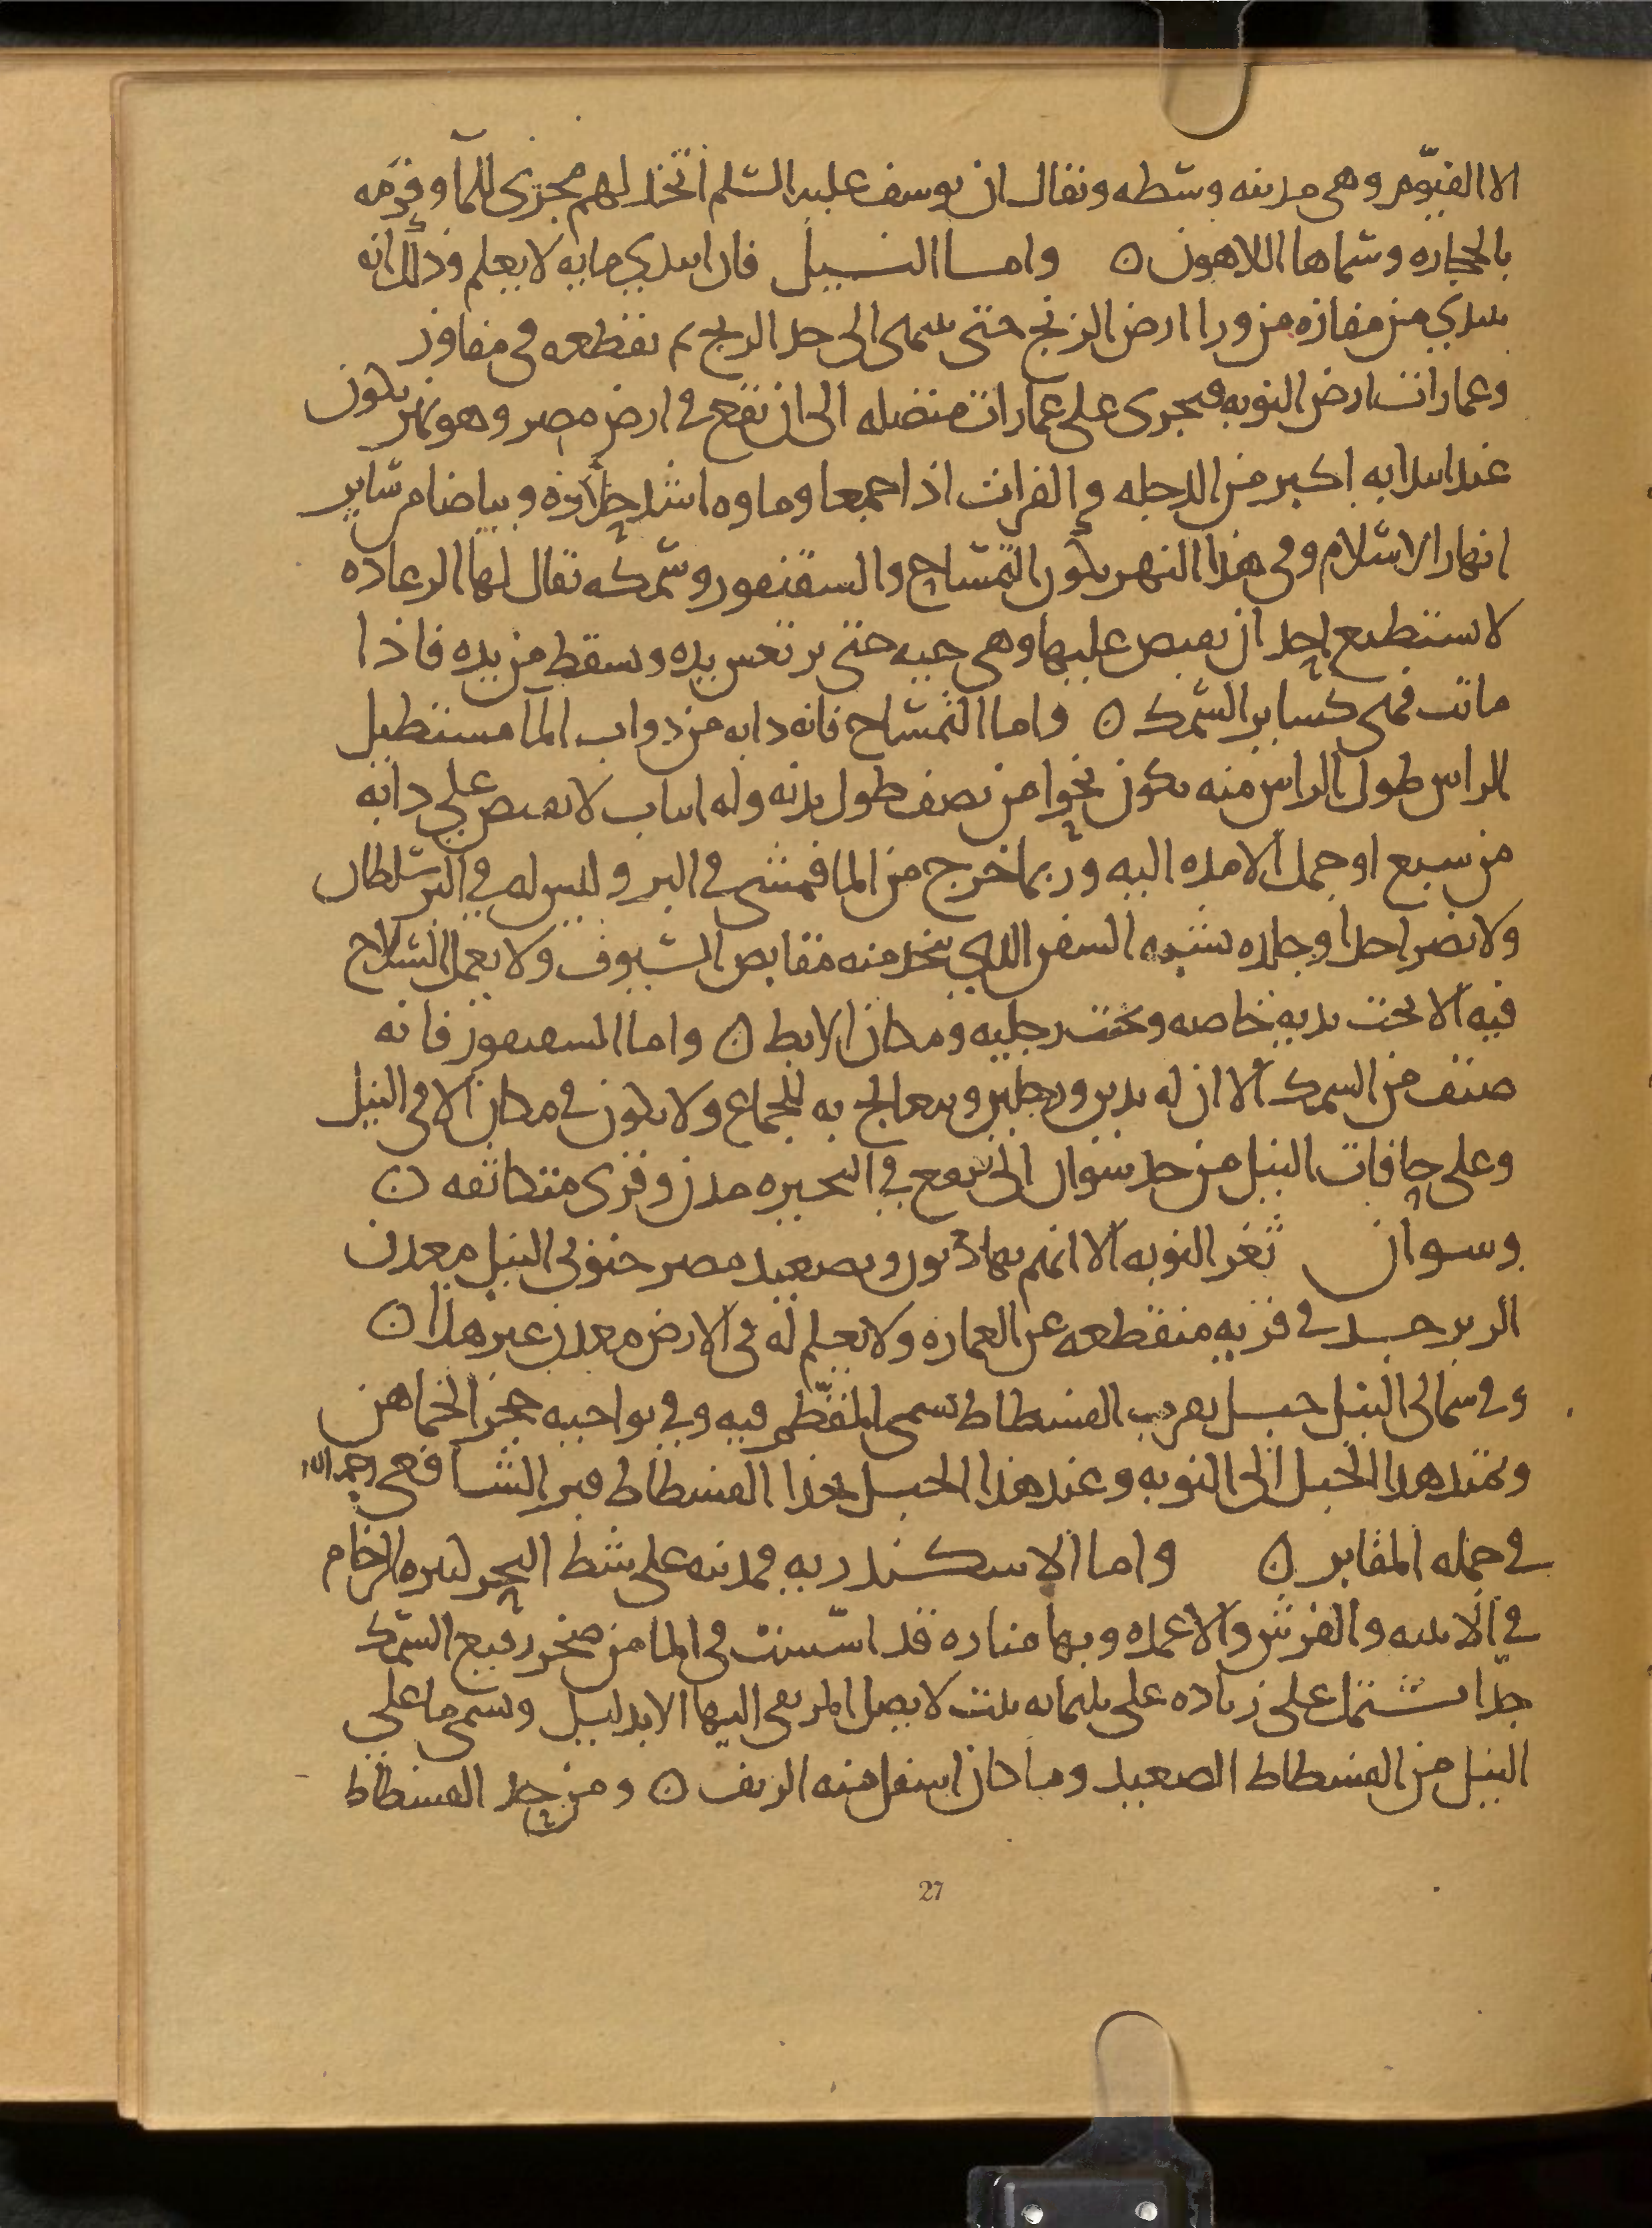 الا الفيّوم وهى مدينه وسطه ويقال ان يوسف عليه السلم اتخذ لهم مجرى للمآ وقومه
بالحجاره وسماها اللاهون ن واما النيل فان ابتدي مايه لا يعلم وذلك انه
يبتدي من مفازه من ورا ارض الزنج حتى ينتهى الى حد الزنج ثم يقطعه فى مفاوز
وعمارات ارض النوبه فيجرى على عمارات متصله الى ان يقع فى ارض مصر وهو نهر يكون
عند ابتدايه اكبر من الدجله والفرات اذا اجتمعا وماوه اشد حلاوه وبياضا من ساير
انهار الاسلام وفى هذا النهر يكون التمساح والسقنقور وسمكه يقال لها الرعاده
لا يستطيع احد ان يقبض عليها وهى حيه حتى يرتعش يده ويسقط من يده فاذا
ماتت فهى كساير السمك ن واما التمساح فانه دابه من دواب المآ مستطيل
الراس طول الراس منه يكون نحوا من نصف طول بدنه وله انياب لا يقبض على دابه
من سبع او جمل الا مده اليه وربما خرج من الما فمشى فى البر وليس له فى البر سلطان
ولا يضر احدا وجلده يشبه السفن الذي يتخذ منه مقابض السيوف ولا يعمل السلاح
فيه الا تحت يديه خاصه وتحت رجليه ومكان الابط ن واما السقنقور فانه
صنف من السمك الا ان له يدين ورجلين ويتعالج به للجماع ولا يكون فى مكان الا فى النيل
وعلى حافات النيل من حد سوان الى يقع فى البحيره مدن وقرى متكاثفه ن
وسوان ثغر النوبه الا انهم مهادنون وبصعيد مصر جنوبى النيل معدن
الزبرجد فى قريه منقطعه عن العماره ولا يعلم له فى الارض معدن غير هذا ن
وفى شمالى النيل جبل بقرب الفسطاط يسمى المقطّم فيه وفى نواحيه حجر الخماهن
ويمتد هذا الجبل الى النوبه وعند هذا الجبل بحذا الفسطاط قبر الشافعى رحمه الله
فى جمله المقابر ن واما الاسكندريه فمدينه على شط البحر كثيره الرخام
فى الابنيه والفرش والاعمده وبها مناره قد اسّست فى الما من صخر رفيع السمك
جدّا يشتمل على زياده على ثلثمايه بيت لا يصل المرتقى اليها الا بدليل ويسمى ما على
النيل من الفسطاط الصعيد وما كان اسفل منه الريف ن ومن حد الفسطاط
27